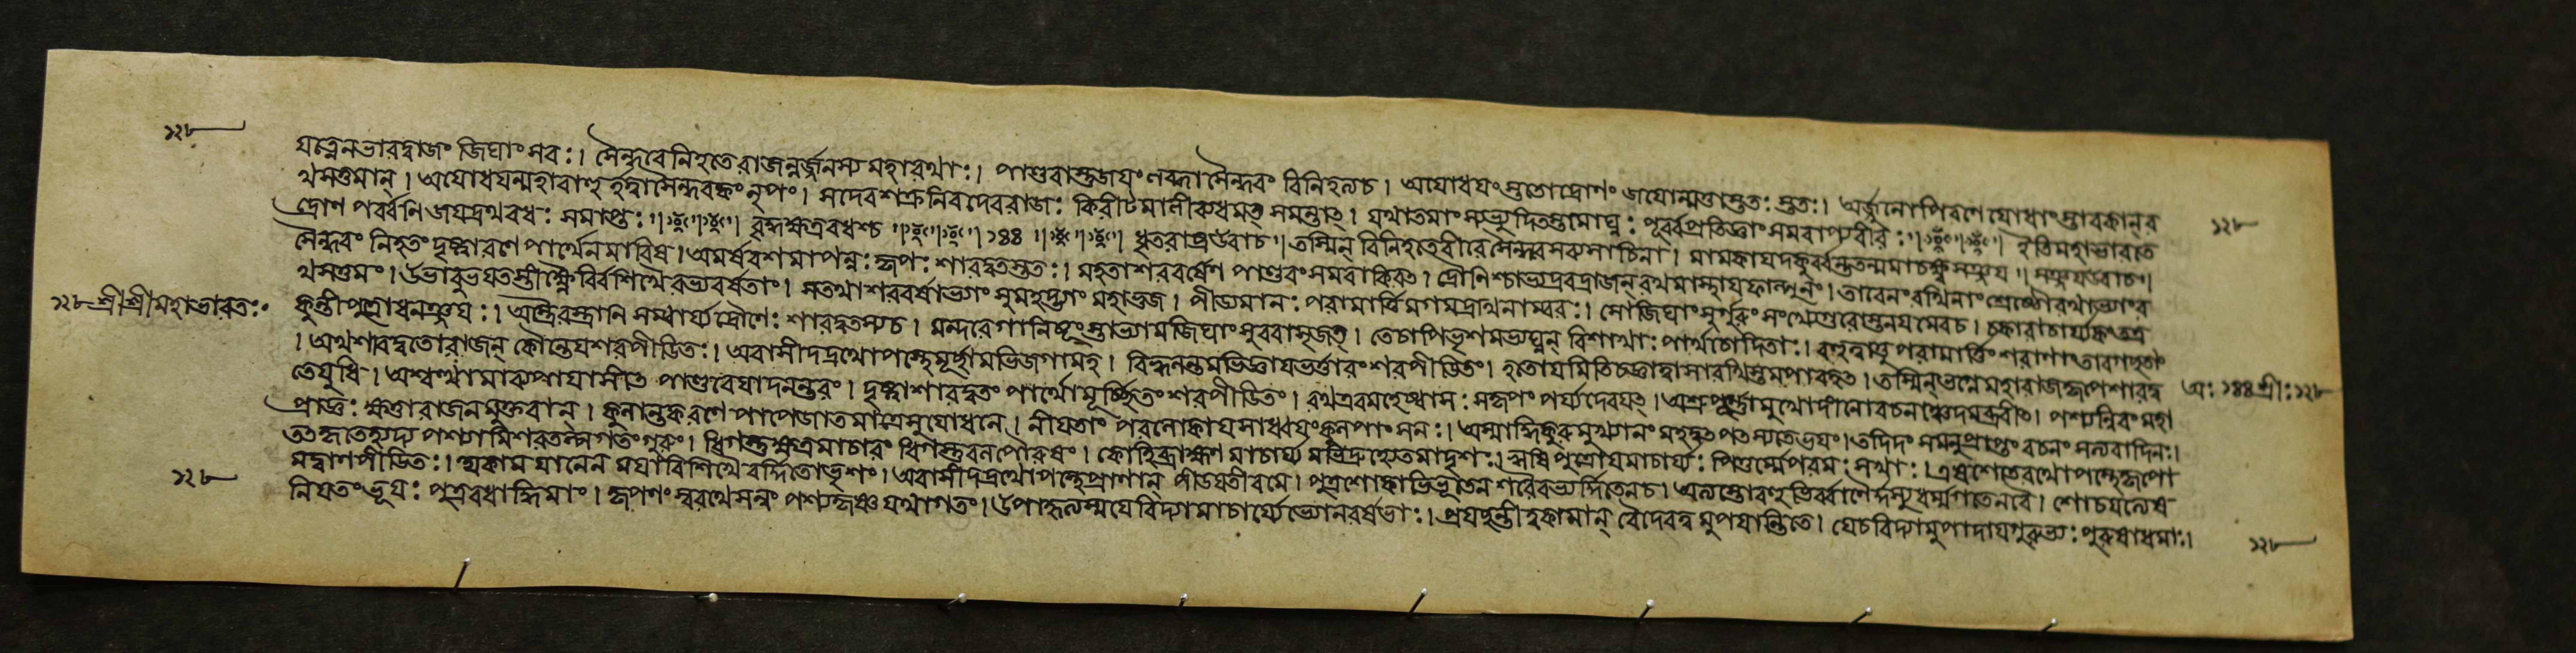 ১২৮
যত্নেনভারদ্বাজং জিঘাংসবঃ। সৈন্ধবেনিহতেরাজন্নর্জুনস্য মহারথাঃ। পাণ্ডবাস্তুজয়ং লব্ধ্বাসৈন্ধবং বিনিহত্যচ। অযোধয়ংস্ততোদ্রোণং জয়োন্মত্তাস্ততঃ স্ততঃ। অর্জুনোপিরণে যোধাংস্তাবকান্র
থসত্তমান্। অযোধয়ন্মহাবাহুর্হত্বাসৈন্ধবকং নৃপং। সদেবশত্রুনিবদেবরাজঃ কিরীটমালীব্যধমত্ সমন্তাত্। যথাতমাংস্যভ্যুদিতস্তমোঘ্নঃ পূর্ব্বপ্রতিজ্ঞাং সমবাপ্যবীরঃ॥ ইতিমহাভারতে ১২৮
দ্রোণ পর্ব্বণি জয়দ্রথবধঃ সমাপ্তঃ॥ বৃদ্ধক্ষত্রবধশ্চ॥ ১৪৪॥ ধৃতরাষ্ট্রউবাচ॥ তস্মিন্ বিনিহতেবীরে সৈন্ধবেসব্যসাচিনা। মামকাযদকুর্ব্বন্ততন্মমাচক্ষ্বসঞ্জয়॥ সঞ্জয়উবাচ॥
সৈন্ধবং নিহতং দৃষ্ট্বারণে পার্থেনমারিষ। অমর্ষবশমাপন্নঃ কৃপঃ শারদ্বতস্ততঃ। মহতাশরবর্ষেণ পাণ্ডবংসমবাকিরত্। দ্রৌণিশ্চাভ্যদ্রবদ্রাজন্ রথমাস্থায়ফাল্গুনং। তাবেনংরথিনাং শ্রেষ্ঠৌরথাভ্যাংর
থসত্তমং। উভাবুভয়তস্তীক্ষ্ণৈর্বিশিখৈরভ্যবর্ষতাং। সতথাশরবর্ষাভ্যাং সুমহদ্ভ্যাং মহাভুজ। পীড্যমানঃ পরামার্ত্তিমগমদ্রথিনাম্বরঃ। সোজিঘাংসুর্গুরুং সংখ্যেগুরোস্তনয়মেবচ। চকারাচার্য্যকংতত্র
১২৮ শ্রীশ্রীমহাভারতঃ কুন্তীপুত্রোধনঞ্জয়ঃ। অস্ত্রৈরস্ত্রানি সম্বার্য্য দ্রৌণেঃ শারদ্বতস্যচ। মন্দবেগানিষূংস্তাভ্যামজিঘাংসুরবাসৃজত্। তেচাপিভৃশমভ্যঘ্নন্ বিশাখাঃ পার্থচোদিতাঃ। বহুত্বাত্তু পরামার্ত্তিং শরাণাংতাবগচ্ছতাং
। অথশারদ্বতোরাজন্ কৌন্তেয়শরপীডিতঃ। অবাসীদদ্রথোপস্থেমূর্চ্ছামভিজগামহ। বিহ্বলন্তমভিজ্ঞায়ভর্ত্তারং শরপীডিতং। হতোযমিতিচজ্ঞাত্বাসারথিস্তমপাবহত্। তস্মিন্ভগ্নেমহারাজকৃপেশারদ্ব অঃ ১৪৪ শ্রীঃ ১২৮
তেযুধি। অশ্বত্থামাব্যপায়াসীত পাণ্ডবেয়াদনন্তরং। দৃষ্ট্বাশারদ্বতং পার্থোমূর্চ্ছিতং শরপীডিতং। রথএবমহেষ্বাসঃ সকৃপং পর্য্যদেবয়ত্। অশ্রুপূর্ণ্ণমুখোদীনোবচনঞ্চেদমব্রবীত্। পশ্যন্নিবং মহা
প্রাজ্ঞঃ ক্ষত্তারাজনমুক্তবান্। কুলান্তকরণে পাপেজাতমাত্রেসুযোধনে। নীয়তাং পরলোকায়সাধ্বয়ংকুলপাংসনঃ। অস্মাদ্ধিকুরুমুখ্যানং মহদুত্পত্স্যতেভয়ং। তদিদং সমনুপ্রাপ্তং বচনং সত্যবাদিনঃ।
তত্কৃতেহ্যদ্য পশ্যামিশরতল্পগতংগুরুং। ধিগস্তুক্ষত্রমাচারং ধিগস্তুবলপৌরুষং। কোহিব্রাহ্মণ মাচার্য্য মভিদ্রুহ্যেতমাদৃশঃ। ঋষিপুত্রোয়মাচার্য্যঃ পিতুর্ম্মেপরমঃ সখাঃ। এষশেতেরথোপস্থেকৃপো
মদ্বাণপীডিতঃ। অকাময়ানেন ময়াবিশিখৈরর্দ্দিতোভৃশং। অবাসীদদ্রথোপস্থেপ্রাণান্ পীডয়তীবমে। পুত্রশোকাভিভূতেন শরৈরভ্যর্দ্দিতেনচ।
১২৮ নিয়তংভূয়ঃ পুত্রবধাদ্ধিমাং। কৃপণং স্বরথেসন্নং পশ্যকৃষ্ণ যথাগতং। উপাকৃত্য ময়েবিদ্যামাচার্য্যেভ্যোনরর্ষভাঃ। প্রয়চ্ছন্তীহকামান্ বৈদেবত্ব মুপয়ান্তিতে। যেচবিদ্যামুপাদায়গুরুভ্যঃ পুরুষাধমাঃ।
১২৮